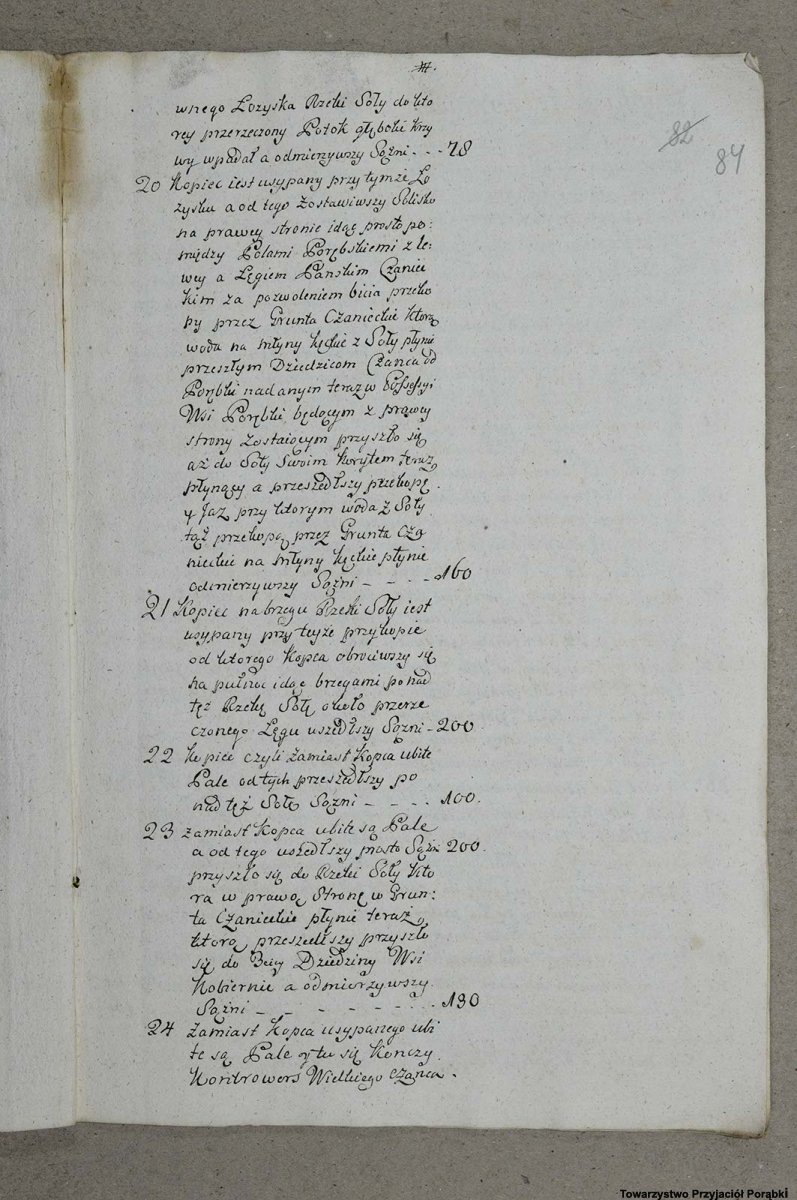 wnego Łozyska Rzeki Soły do kto
rey przerzeczony Potok głęboki krzy
wy wpadał a odmierzywszy Sązni - - - 78
82
84
20 Kopiec iest usypany przy tymże Ło
żysku a od tego zostawiwszy Solisko
na prawey stronie idąc prosto po:
między Polami Porębskiemi z le:
wey a Łęgiem Panskim Czaniec
kim za pozwoleniem bicia przeko
py przez Grunta Czanieckie ktorą
woda na młyny kęckie z Soły płynie
przeszłym Dziedzicom Czanca od
Porębki nadanym teraz w Possessyi
Wsi Porębki będącym z prawey
strony zostaiącym przyszło się
aż do Soły swoim korytem teraz
płynącey a przeszedłszy przekopę
y Jaz przy ktorym woda z Soły
tąż przekopą przez Grunta Cza
nieckie na młyny kęckie płynie
odmierzywszy Sązni - - - - 160
21 Kopiec na brzegu Rzeki Soły iest
usypany przy teyże przykopie
od ktorego kopca obrociwszy się
na pułnoc idąc brzegami ponad
też Rzekę Sołę około przerze
czonego Łęgu uszedłszy Sązni - 200
22 Kopiec czyli zamiast kopca ubite
Pale od tych przeszedłszy po
nad też Sołę Sązni - - - - 100.
23 zamiast kopca ubite są Pale
a od tego uszedłszy prosto Sążni 200.
przyszło się do Rzeki Soły kto
ra w prawą stronę w Grun:
ta Czanieckie płynie teraz,
ktorą przeszedłszy przyszło
się do Dziedziny Wsi
Kobiernic a odmierzywszy
Sążni - - - - - - - - 130
24 zamiast kopca usypanego ubi
te są Pale y tu się konczy
Kontrowers Wielkiego Czanca.
Towarzystwo Przyjaciół Porąbki